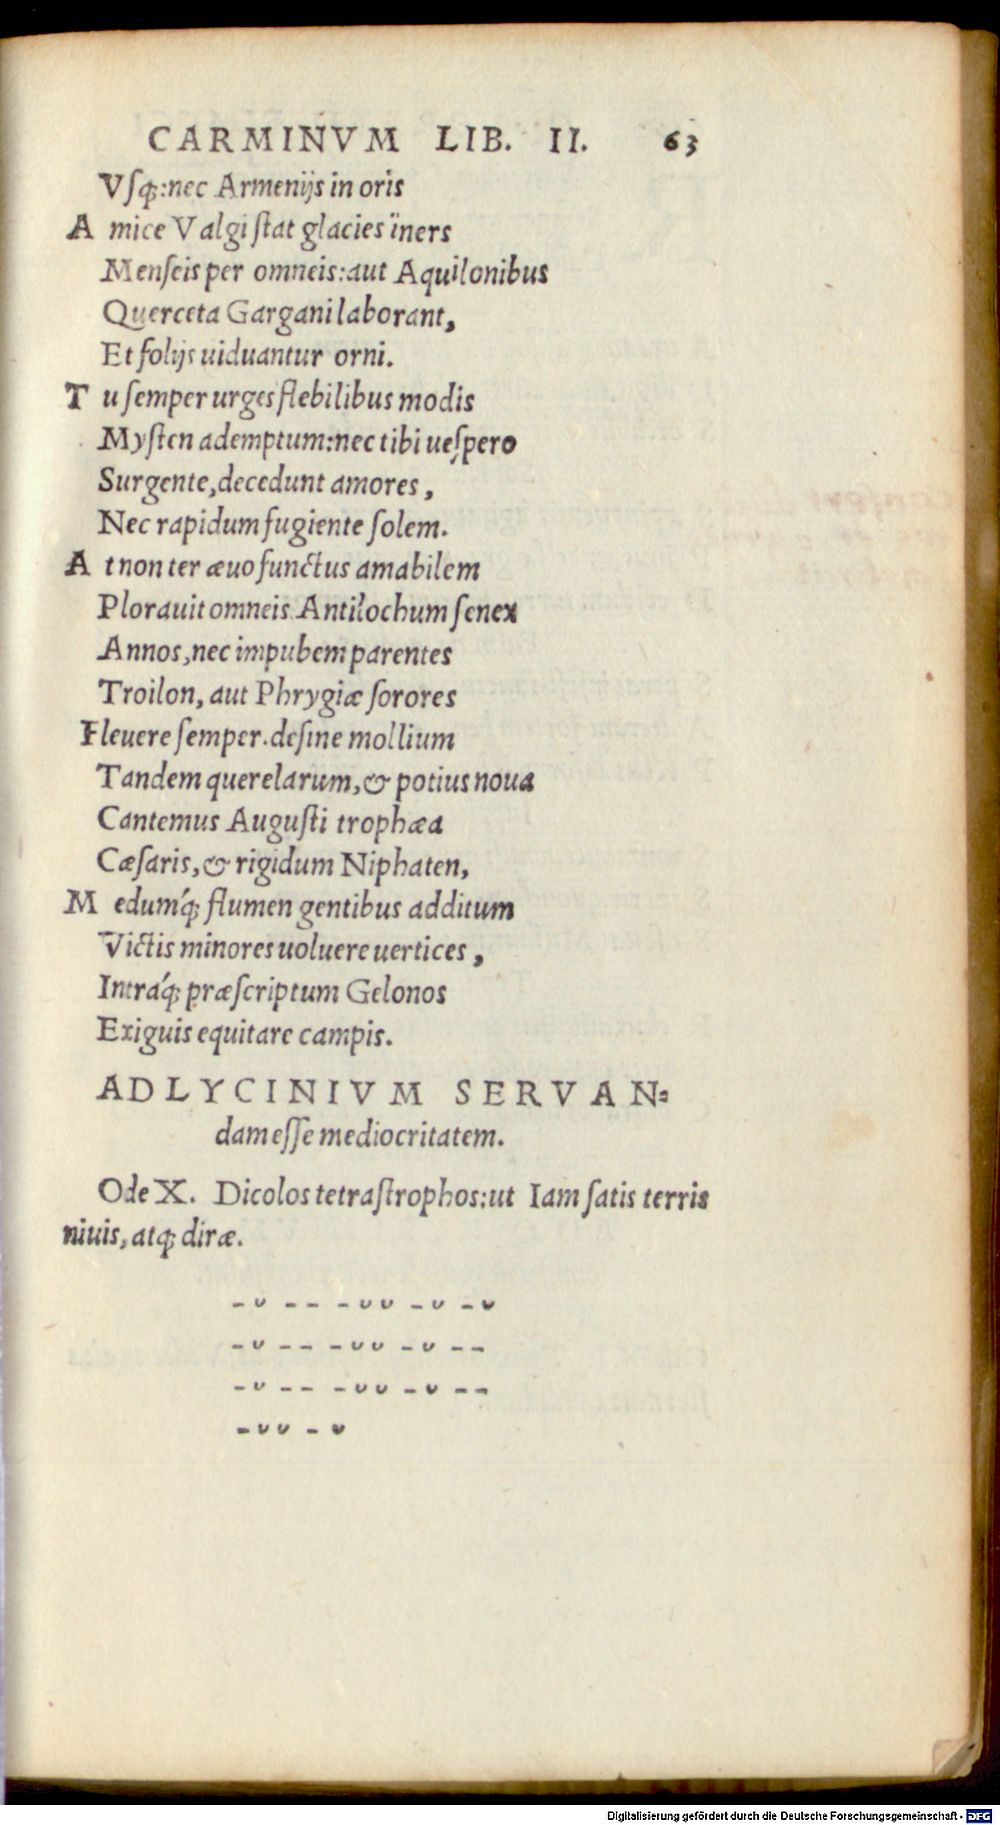 CARMINVM LIB. II. 63
Vſqꝫ:nec Armenijs in oris
A mice Valgi ſtat glacies ïners
Menſeis per omneis:aut Aquilonibus
Querceta Gargani laborant,
Et folijs uiduantur orni.
T u ſemper urges flebilibus modis
Myſten ademptum:nec tibi ueſpero
Surgente,decedunt amores,
Nec rapidum fugiente ſolem.
A t non ter æuo functus amabilem
Plorauit omneis Antilochum ſenex
Annos,nec impubem parentes
Troilon, aut Phrygiæ ſorores
Fleuere ſemper.deſine mollium
Tandem querelarum,& potius noua
Cantemus Auguſti trophæa
Cæſaris,& rigidum Niphaten,
M edum'qꝫ flumen gentibus additum
Victis minores uoluere uertices,
Intrá'qꝫ præſcriptum Gelonos
Exiguis equitare campis.
AD LYCINIVM SERVAN=
dam eſſe mediocritatem.
Ode X. Dicolos tetraſtrophos:ut Iam ſatis terris
niuis, atqꝫ diræ.
– ᴗ – – – ᴗ ᴗ – ᴗ – ᴗ
– ᴗ – – – ᴗ ᴗ – ᴗ – –
– ᴗ – – – ᴗ ᴗ – ᴗ – –
– ᴗ ᴗ – ᴗ
Digitalisierung gefördert durch die Deutsche Forschungsgemeinschaft - DFG